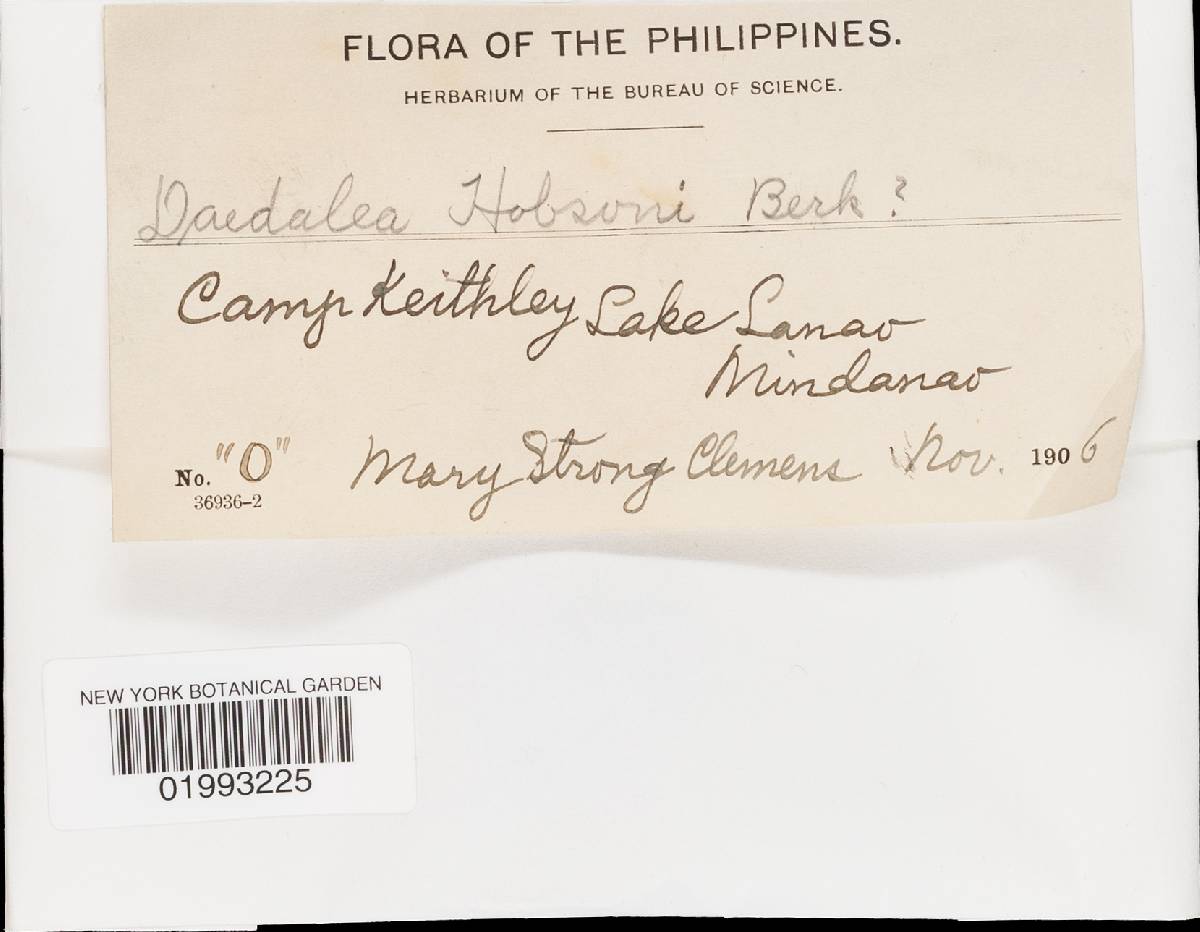 FLORA OF THE PHILIPPINES.
HERBARIUM OF THE BUREAU OF SCIENCE.
Daedalea Hobsoni Berk?
Camp Keithley Lake Lanao
Mindanao
No. "O" Mary Strong Clemens Nov. 1906
36936-2
NEW YORK BOTANICAL GARDEN
01993225